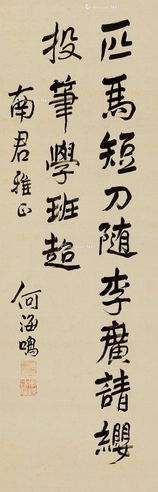 匹馬短刀随李廣請纓
投筆學班超
南君雅正
何海鳴